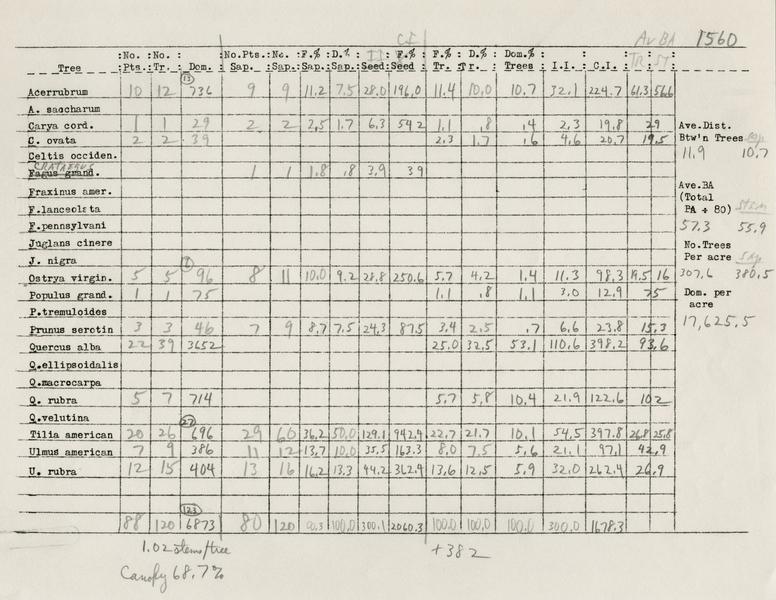 CI
Av BA 1560
:No. :No. : :No.Pts.:No. :F.% :D.% : II : F.% : F.% : D.% : Dom.% : : :TR.:ST:
Tree :Pts.:Tr. : Dom. :Sap. :Sap.:Sap.:Sap.:Seed:Seed : Tr. :Tr. : Trees : I.I. : C.I. :
(13)
Acerrubrum 10 12 736 9 9 11.2 7.5 28.0 196.0 11.4 10.0 10.7 32.1 224.7 61.3 56.6
A. saccharum
Carya cord. 1 1 29 2 2 2.5 1.7 6.3 54.2 1.1 .8 .4 2.3 19.8 29
C. ovata 2 2 39 2.3 1.7 .6 4.6 20.7 19.5
Celtis occiden.
CRATAEGUS
Fagus grand. 1 1 1.8 .8 3.9 39
Fraxinus amer.
F.lanceolata
F.pennsylvani
Juglans cinere
J. nigra
Ostrya virgin. 5 5 96 8 11 10.0 9.2 28.8 250.6 5.7 4.2 1.4 11.3 98.3 19.5 16
Populus grand. 1 1 75 1.1 .8 1.1 3.0 12.9 75
P.tremuloides
Prunus serotin 3 3 46 7 9 8.7 7.5 24.3 87.5 3.4 2.5 .7 6.6 23.8 15.3
Quercus alba 22 39 3652 25.0 32.5 53.1 110.6 398.2 93.6
Q.ellipsoidalis
Q.macrocarpa
Q. rubra 5 7 714 5.7 5.8 10.4 21.9 122.6 102
Q.velutina
(27)
Tilia american 20 26 696 29 60 36.2 50.0 129.1 942.4 22.7 21.7 10.1 54.5 397.8 26.8 25.8
Ulmus american 7 9 386 11 12 13.7 10.0 35.5 163.3 8.0 7.5 5.6 21.1 97.1 42.9
U. rubra 12 15 404 13 16 16.2 13.3 44.2 362.9 13.6 12.5 5.9 32.0 262.4 26.9
(123)
88 120 6873 80 120 100.0 300.1 2060.3 100.0 100.0 100.0 300.0 1678.3
Ave.Dist.
Btw'n Trees
11.9 10.7
Ave.BA
(Total
BA ÷ 80) STEM
57.3 55.9
No.Trees
Per acre Sap
307.6 380.5
Dom. per
acre
17,625.5
1.02 stems/tree
+382
Canopy 68.7%